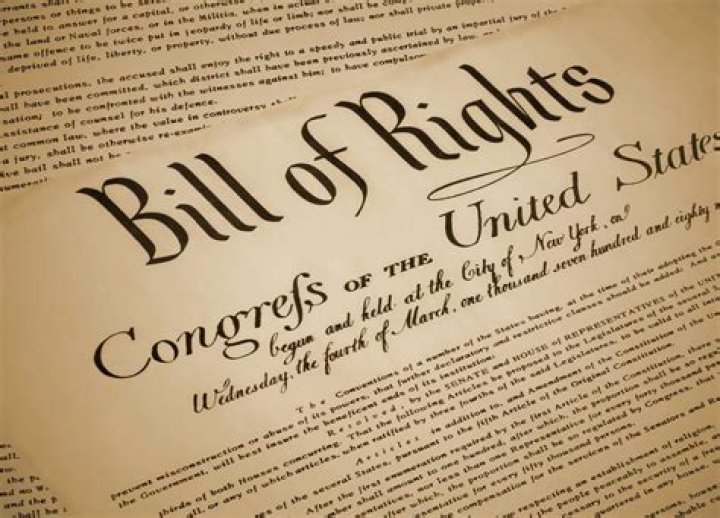 persons or things to be
e held to answer for a capital, or otherwise
the land or Naval forces, or in the Militia, when in actual
same offence to be twice put in jeopardy of life or limb; nor shall be
deprived of life, liberty, or property, without due process of law; nor shall private
l prosecutions, the accused shall enjoy the right to a speedy and public trial by an impartial jury of the
all have been committed, which district shall have been previously ascertained by law,
sation; to be confronted with the witnesses against him; to have
ssistance of counsel for his defence.
t common law, where the value in controversy
a jury, shall be otherwise
ive bail shall not be
Bill of Rights
Congreſs OF THE United States
begun and held at the City of New York, on
Wednesday, the fourth of March, one thousand seven hundred and eighty
The Conventions of a number of the States having, at the time of their adopting the
prevent misconstruction or abuse of its powers, that further declaratory and restrictive clauses should be added: And
the Government, will best insure the beneficent ends of its institution:
Resolved, by the SENATE and HOUSE of REPRESENTATIVES of the
thirds of both Houses concurring, That the following Articles be proposed to the Legislatures of the several
all, or any of which articles, when ratified by three fourths of the said Legislatures, to be valid to all
Articles in addition to, and Amendment of the Constitution of the
ges of the several States, pursuant to the fifth Article of the Original Constitution.
After the first enumeration required by the first Article of the Constitution, there
mber shall amount to one hundred, after which, the proportion shall be so
tatives, nor less than one Representative for every forty thousand
after which, the proportion shall be so regulated by Congress, that
Representative for every fifty thousand persons.
compensation for the services of the Senators and
respecting an establishment of religion,
of the people peaceably to assemble,
to the security of a